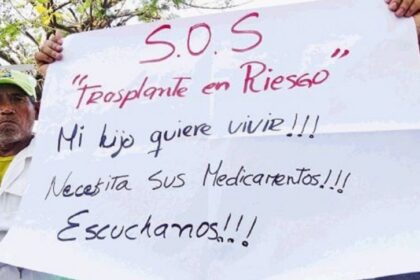 S.O.S
"Trosplante en Riesgo"
Mi hijo quiere vivir!!!
Necesita sus Medicamentos!!!
Escuchanos!!!